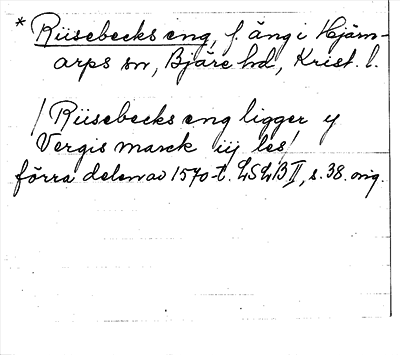 * Riisebecks eng, f. äng i Hjärn-
arps sn, Bjäre hd, Krist. l.
/ Riisebecks eng ligger y
Vergis marck iij les /
förra delen av 1570-t. LSLB II, s. 38. orig.